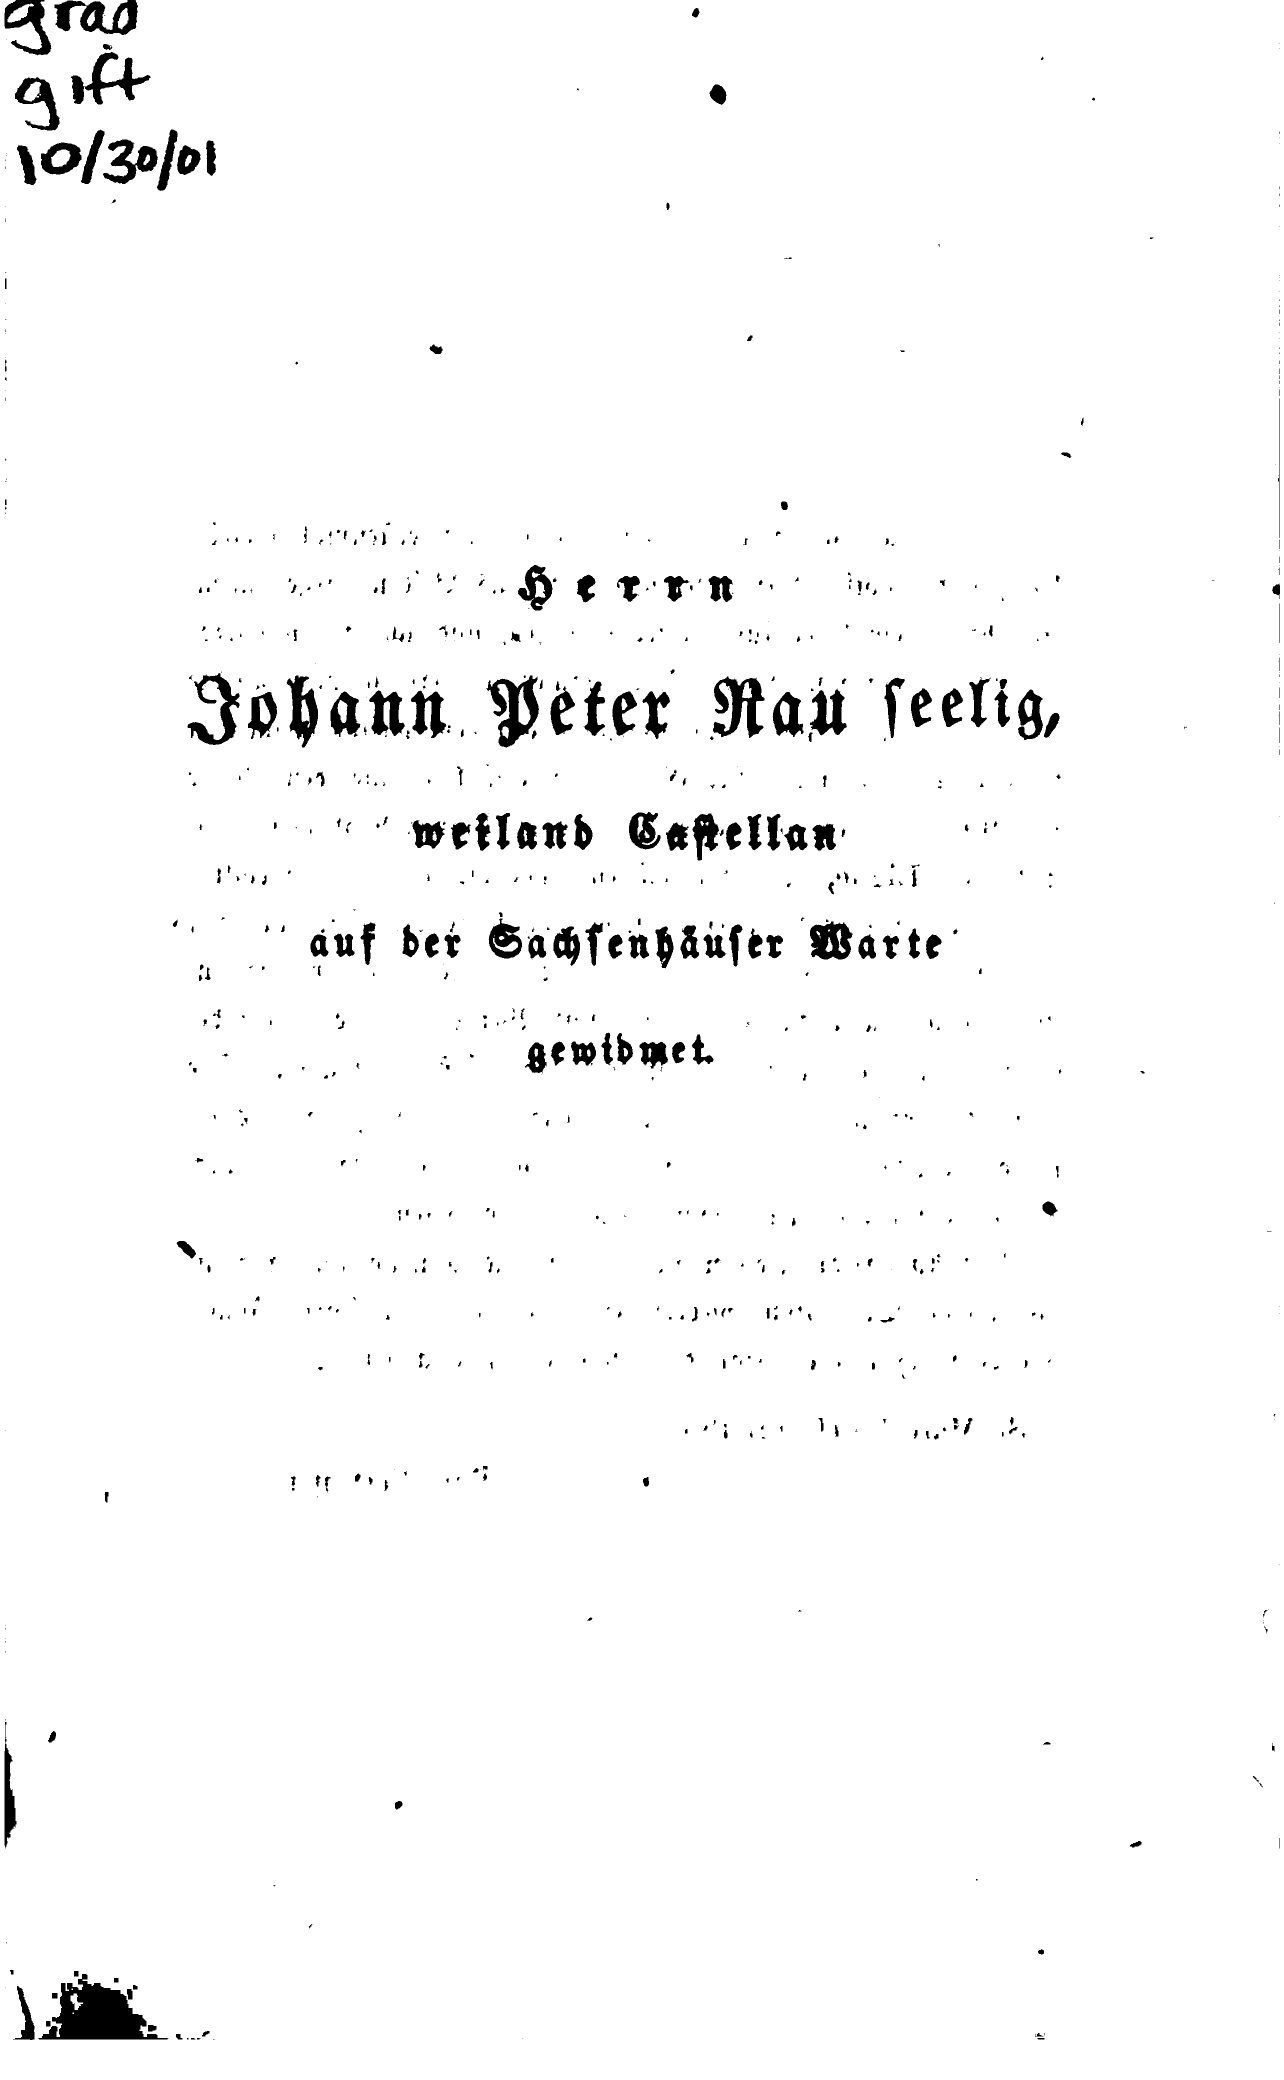 grad
gift
10/30/01
Herrn
Johann Peter Rau seelig,
weiland Castellan
auf der Sachsenhäuser Warte
gewidmet.